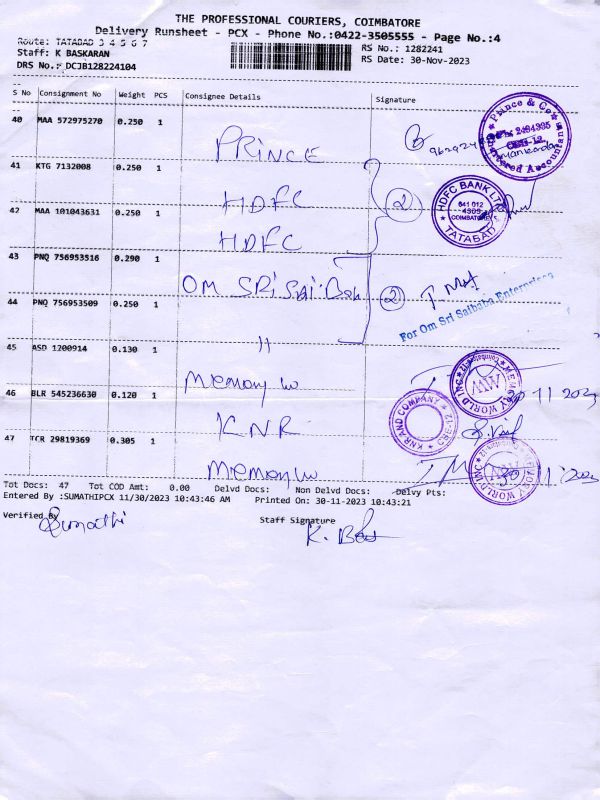 THE PROFESSIONAL COURIERS, COIMBATORE
Delivery Runsheet - PCX - Phone No.:0422-3505555 - Page No.:4
Route: TATABAD 3 4 5 6 7
RS No.: 1282241
Staff: K BASKARAN
RS Date: 30-Nov-2023
DRS No.: DCJB128224104
S No Consignment No Weight PCS Consignee Details Signature
40 MAA 572975270 0.250 1 PRINCE
Prince & Co
Chartered Accountants
41 KTG 7132008 0.250 1 HDFC
2
HDFC BANK LTD
641 012
4309
COIMBATORE
TATABAD
42 MAA 101043631 0.250 1 HDFC
43 PNQ 756953516 0.290 1 OM SRi Sai
2
For Om Sri Saibaba Enterprises
44 PNQ 756953509 0.250 1 "
45 ASD 1200914 0.130 1 Memory w
MEMORY WORLD INC
MW
30 11 202
46 BLR 545236630 0.120 1 KNR
KNR AND COMPANY
CBE-12
47 TCR 29819369 0.305 1 Memory w
MEMORY WORLD INC
30 11 202
Tot Docs: 47 Tot COD Amt: 0.00 Delvd Docs: Non Delvd Docs: Delvy Pts:
Entered By :SUMATHIPCX 11/30/2023 10:43:46 AM Printed On: 30-11-2023 10:43:21
Verified By
Sumathi
Staff Signature
K. Bas